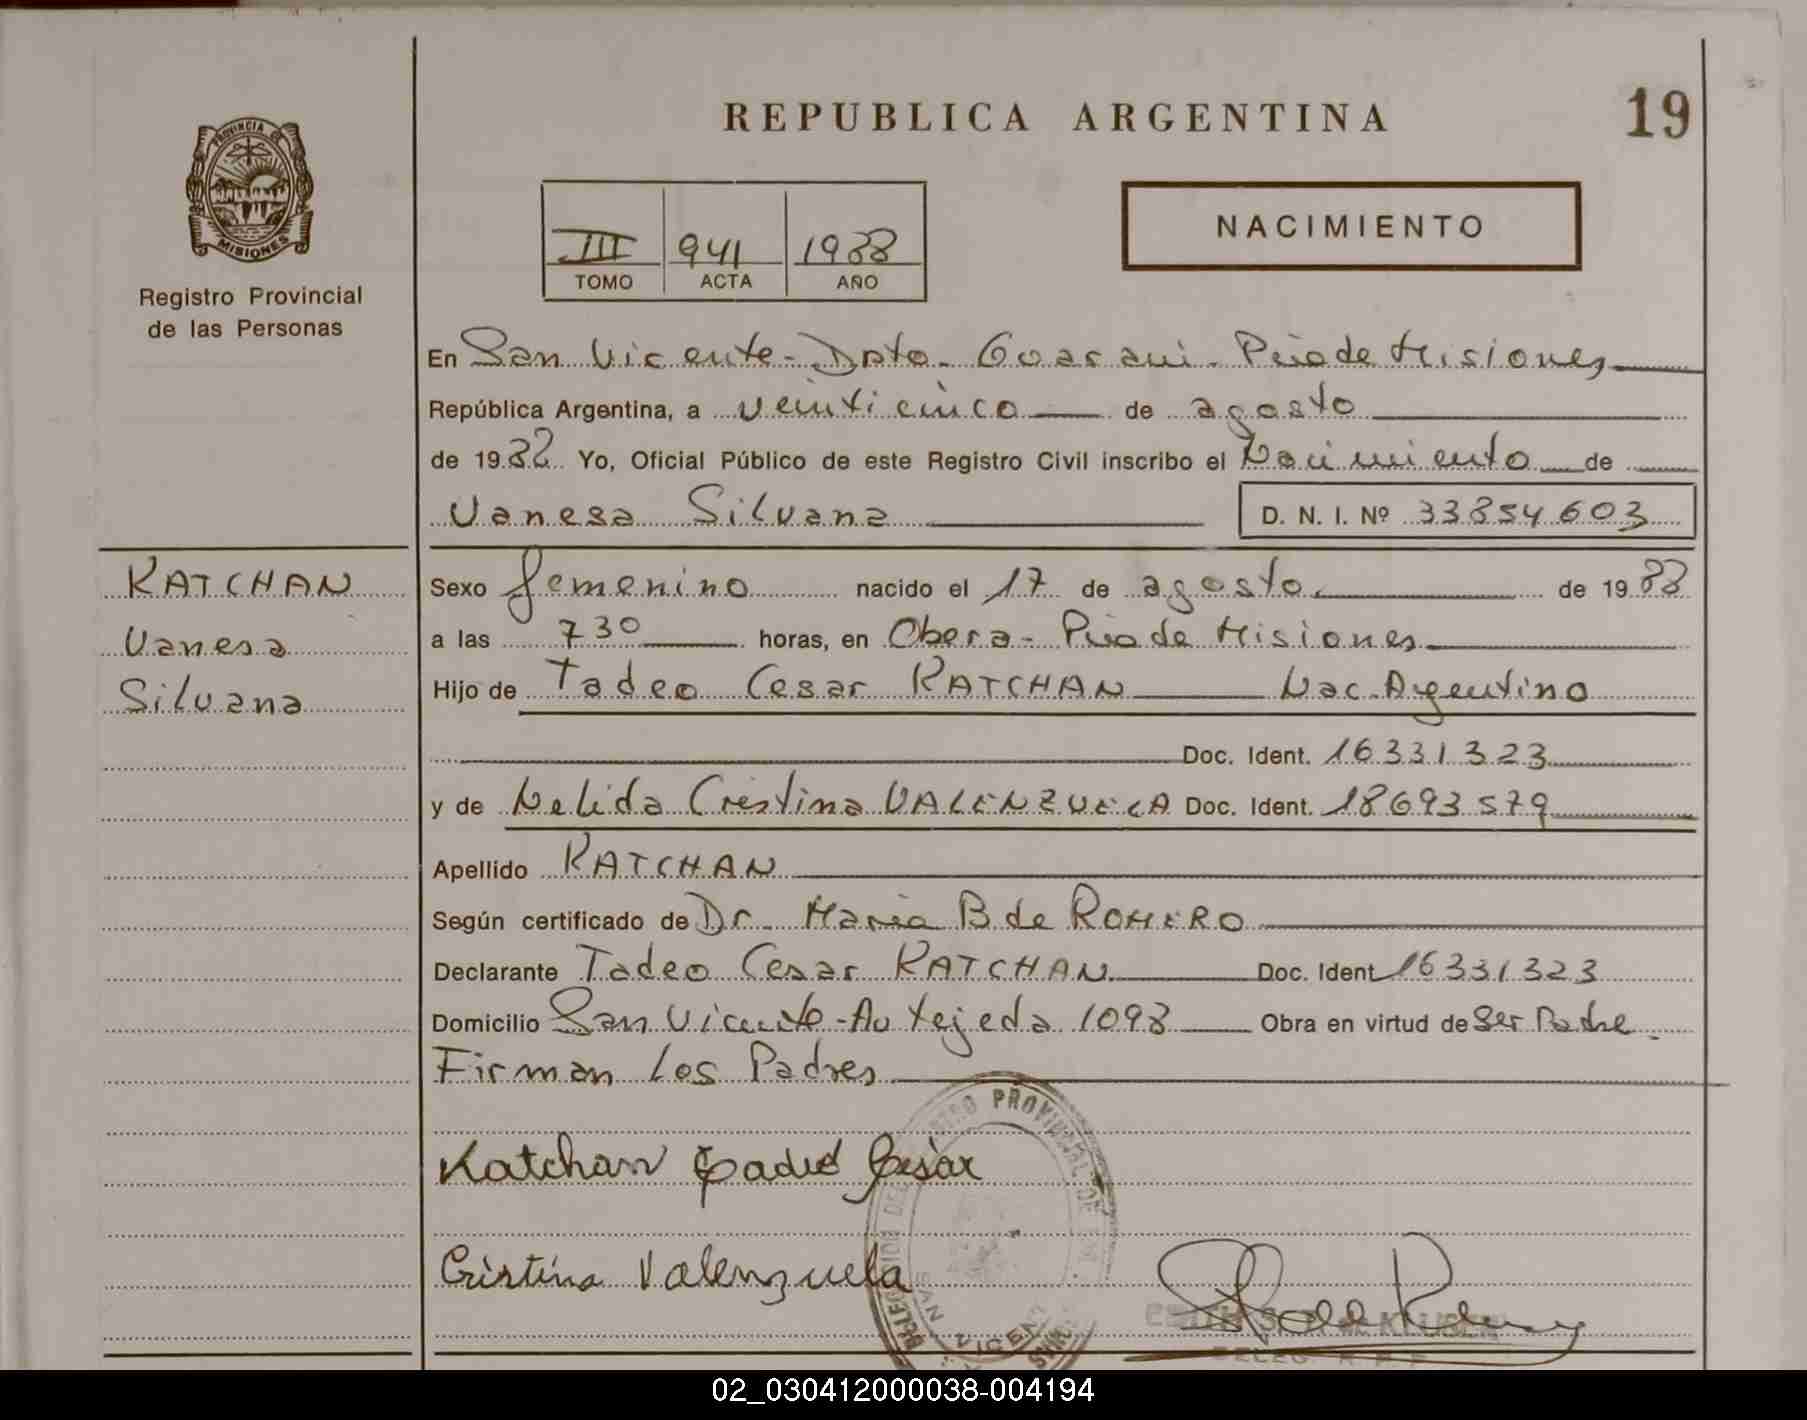 REPUBLICA ARGENTINA
19
PROVINCIA DE
MISIONES
Registro Provincial
de las Personas
III 941 1988
TOMO ACTA AÑO
NACIMIENTO
En San Vicente - Dpto. Guarani - Pcia de Misiones
República Argentina, a veinticinco de agosto
de 1988 Yo, Oficial Público de este Registro Civil inscribo el Nacimiento de
Vanesa Silvana
D. N. I. Nº 33854603
KATCHAN
Vanesa
Silvana
Sexo femenino nacido el 17 de agosto de 1988
a las 730 horas, en Obera - Pcia de Misiones
Hijo de Tadeo Cesar KATCHAN Nac. Argentino
Doc. Ident. 16331323
y de Nelida Cristina VALENZUELA Doc. Ident. 18693579
Apellido KATCHAN
Según certificado de Dr. Maria B. de ROMERO
Declarante Tadeo Cesar KATCHAN Doc. Ident 16331323
Domicilio San Vicente - Av Tejeda 1098 Obra en virtud de Ser Padre
Firman Los Padres
Katchan Tadeo Cesar
Cristina Valenzuela
DELEGACION DEL REGISTRO PROVINCIAL DE
SAN VICENTE
02_030412000038-004194